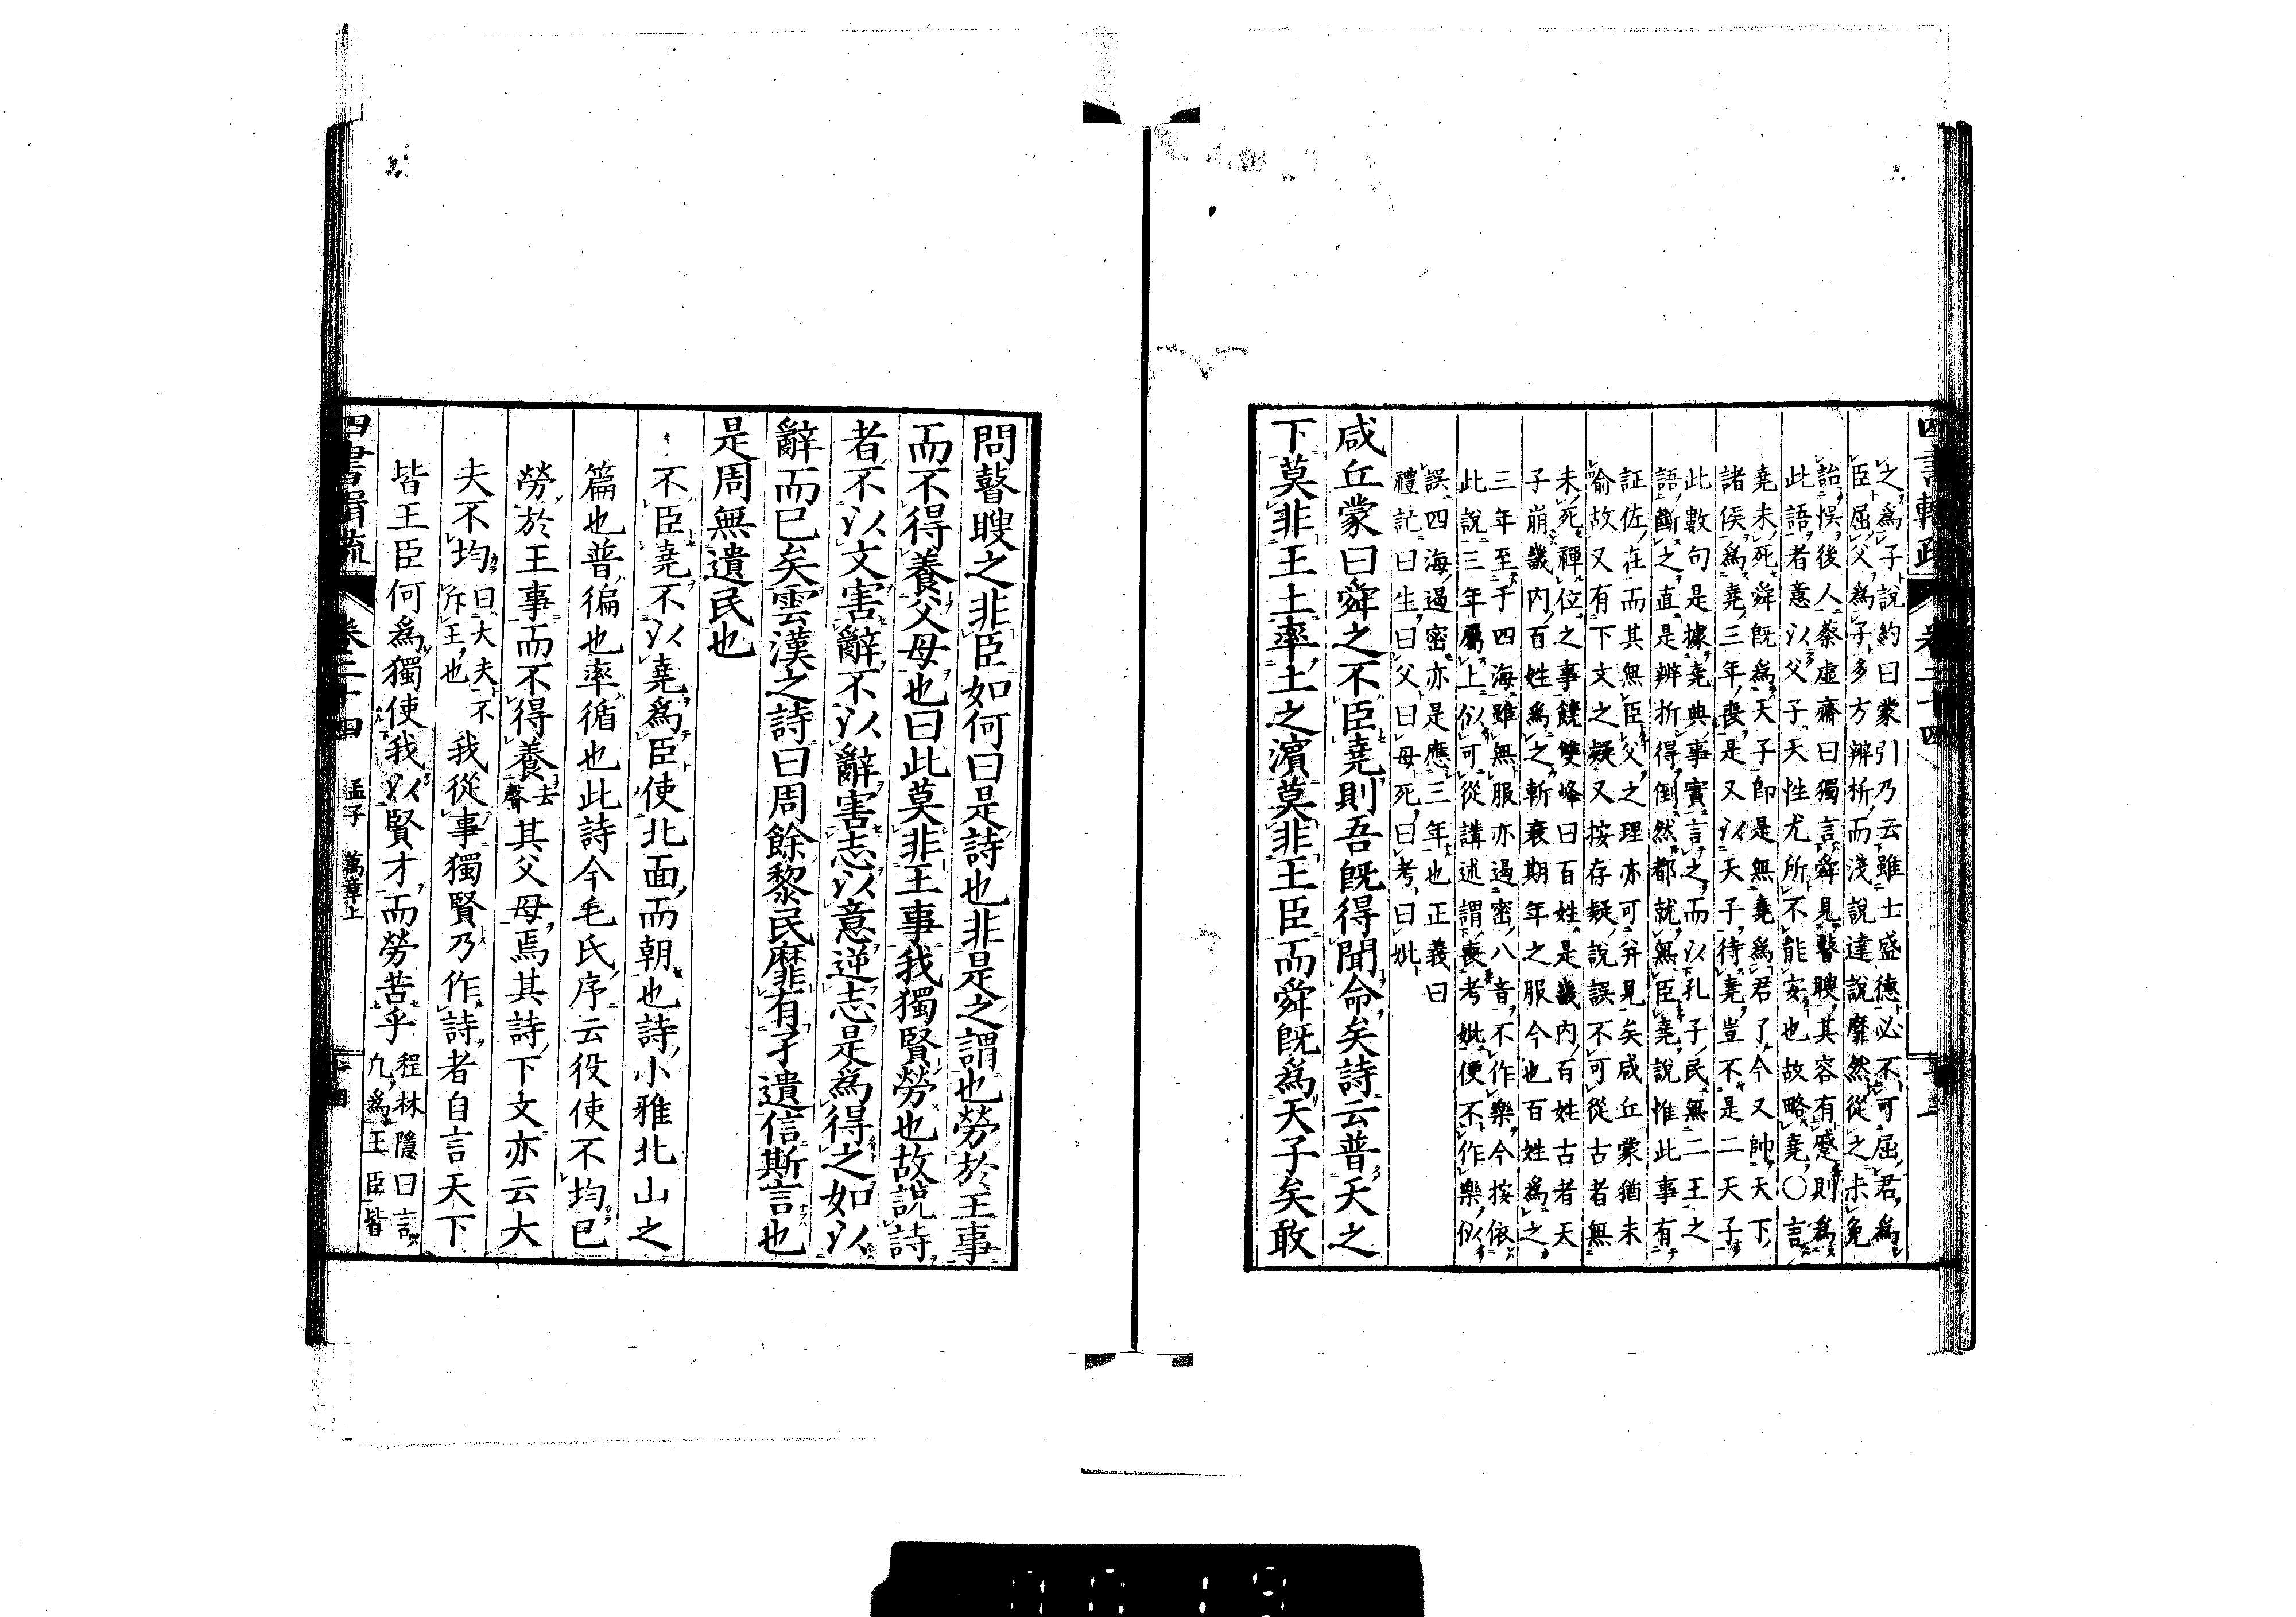 四書輯疏 卷二十四
之爲子說約曰蒙引乃云雖士盛德必不可屈君爲
臣屈父爲子多方辨析而淺說達說靡然從之未免
詒悞後人蔡虛齋曰獨言舜見瞽瞍其容有蹙則爲
此語者意以父子天性尤所不能安也故略堯〇言
堯未死舜旣爲天子卽是無堯爲君了今又帥天下
諸侯爲堯三年喪是又以天子待堯豈不是二天子
此數句是據堯典事實言之而以孔子民無二王之
語斷之直是辨折得倒然都就無臣堯說惟此事有
証佐在而其無臣父之理亦可并見矣咸丘蒙猶未
喻故又有下文之疑又按存疑說誤不可從古者無
未死禪位之事饒雙峰曰百姓是畿內百姓古者天
子崩畿內百姓爲之斬衰期年之服今也百姓爲之
三年至于四海雖無服亦遏密八音不作樂今按依
此說三年屬上似可從講述謂喪考妣便不作樂似
誤四海遏密亦是應三年也正義曰
禮記曰生曰父曰母死曰考曰妣
咸丘蒙曰舜之不臣堯則吾旣得聞命矣詩云普天之
下莫非王土率土之濱莫非王臣而舜旣爲天子矣敢
問瞽瞍之非臣如何曰是詩也非是之謂也勞於王事
而不得養父母也曰此莫非王事我獨賢勞也故說詩
者不以文害辭不以辭害志以意逆志是爲得之如以
辭而已矣雲漢之詩曰周餘黎民靡有孑遺信斯言也
是周無遺民也
不臣堯不以堯爲臣使北面而朝也詩小雅北山之
篇也普徧也率循也此詩今毛氏序云役使不均已
勞於王事而不得養去聲其父母焉其詩下文亦云大
夫不均曰大夫不斥王也我從事獨賢乃作詩者自言天下
皆王臣何爲獨使我以賢才而勞苦乎程林隱曰言凡爲王臣皆
四書輯疏 卷二十四 孟子 萬章上